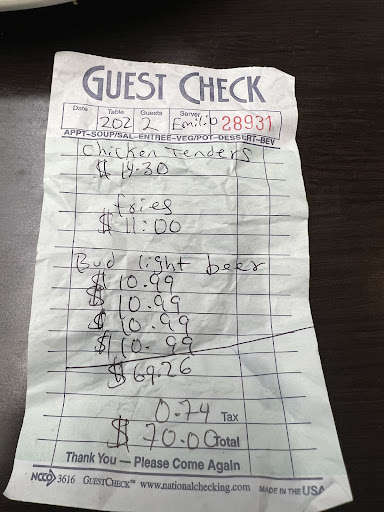 GUEST CHECK
Date Table Guests Server
202 2 Emilio 28931
APPT-SOUP/SAL-ENTREE-VEG/POT-DESSERT-BEV
Chicken Tenders
$ 14.30
fries
$ 11:00
Bud light beer
$ 10.99
$ 10.99
$ 10.99
$ 10.99
$ 69.26
0.74 Tax
$ 70.00 Total
Thank You — Please Come Again
NCCO 3616 GUESTCHECK™ www.nationalchecking.com MADE IN THE USA